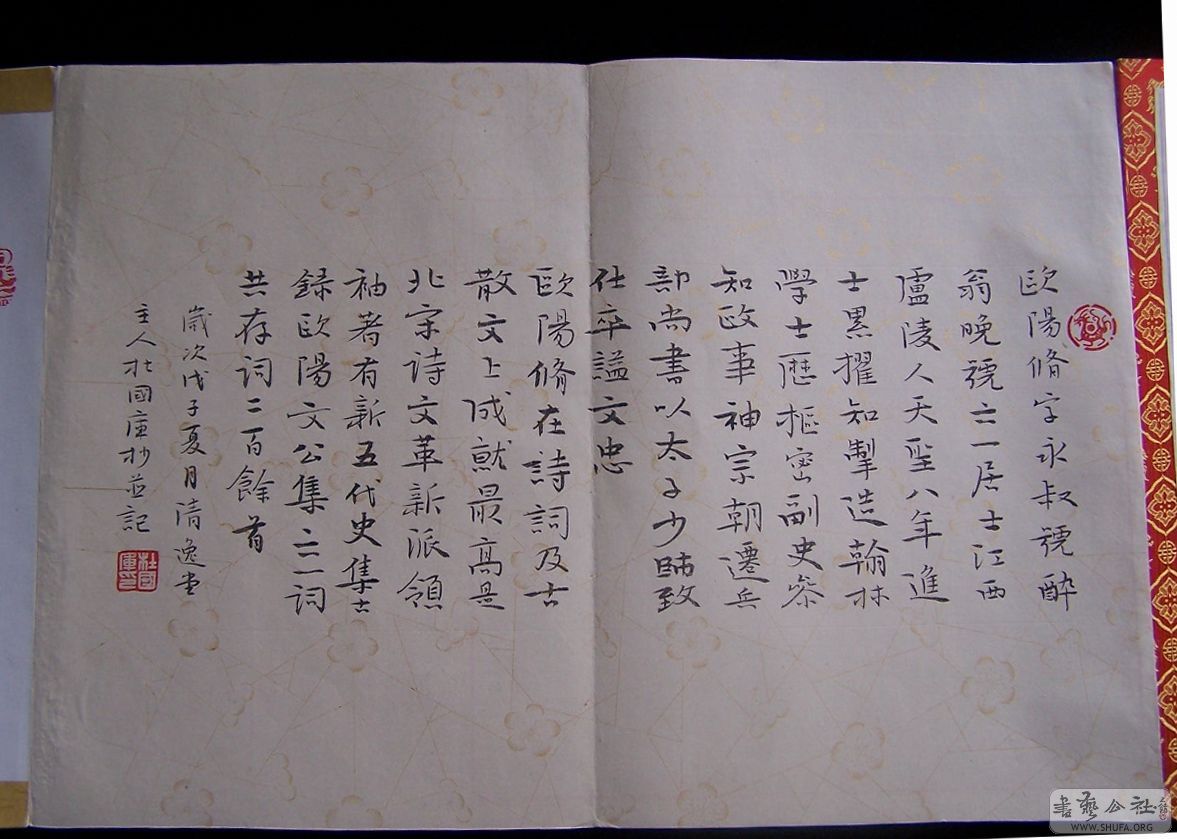 歐陽脩字永叔號醉
翁晚號六一居士江西
廬陵人天聖八年進
士累擢知掣造翰林
學士歷樞密副史參
知政事神宗朝遷兵
部尚書以太子少師致
仕卒謚文忠
歐陽脩在詩詞及古
散文上成就最高是
北宋詩文革新派領
袖著有新五代史集古
録歐陽文公集六一詞
共存詞二百餘首
歲次戊子夏月清逸堂
主人杜國庫抄並記
書藝公社
WWW.SHUFA.ORG